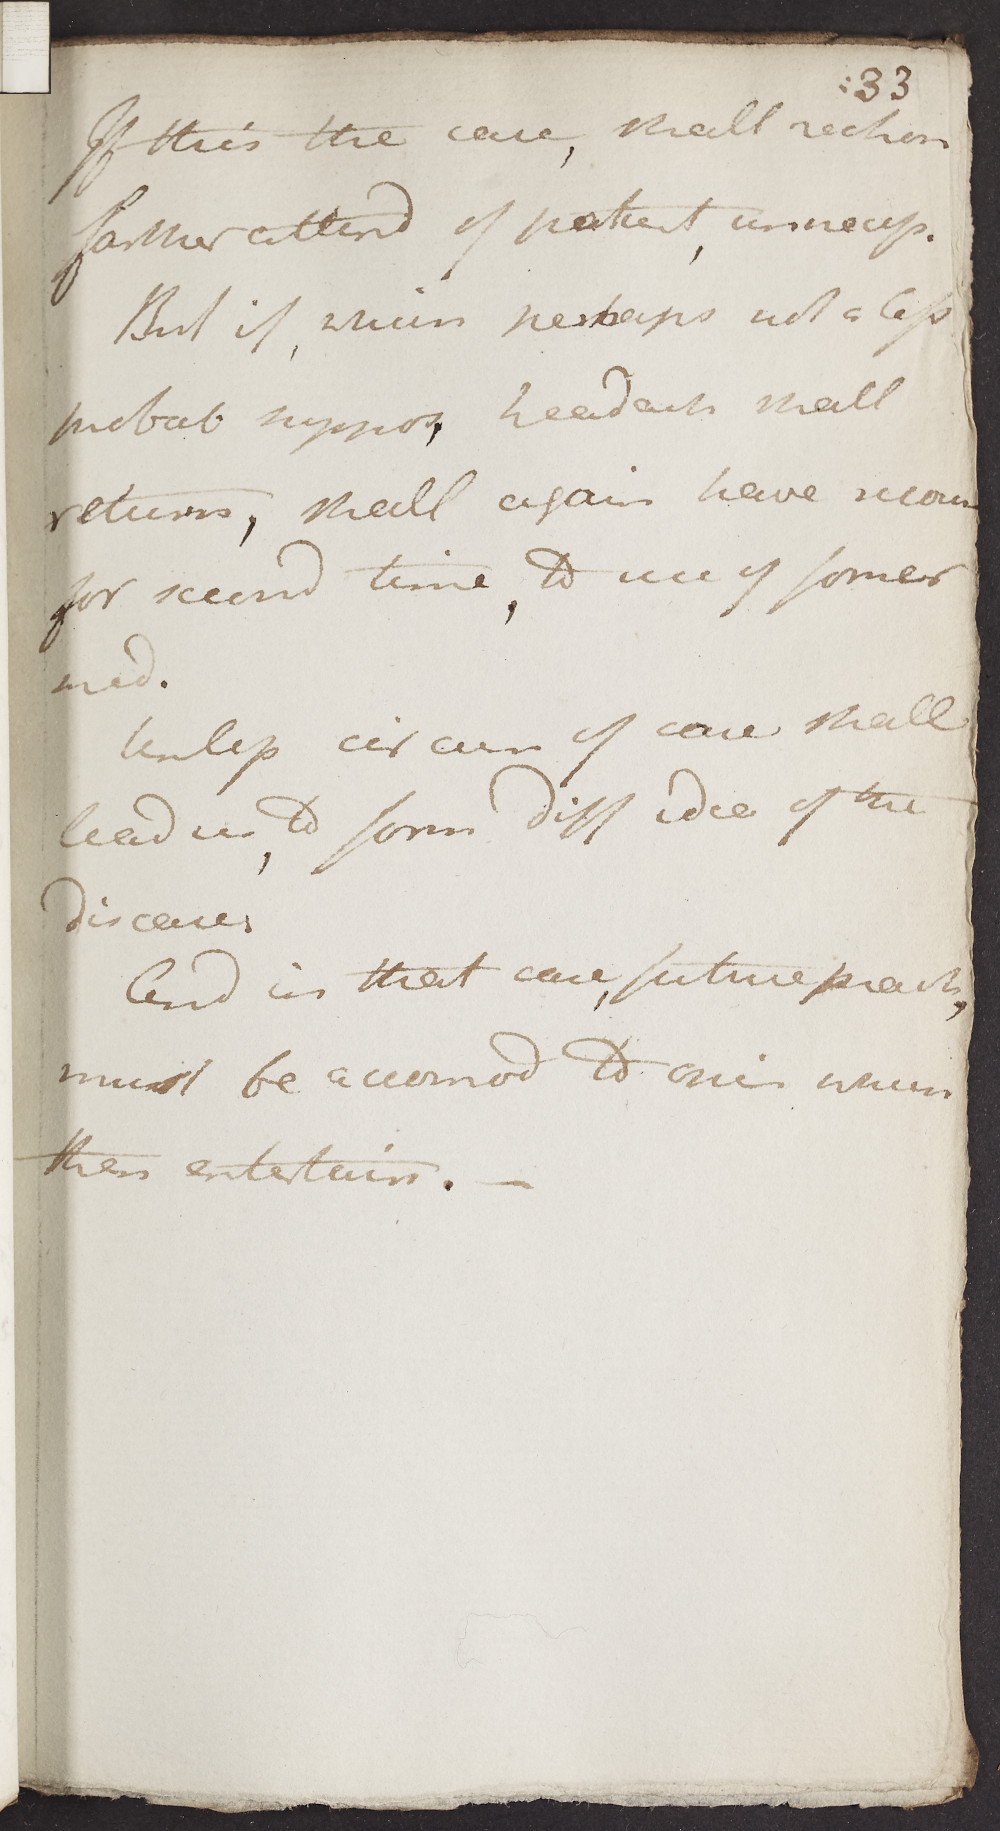 :33
If this the case, shall reckon
farther attend of patient, unnecess.
But if, which perhaps not a less
probab suppos, headach shall
return, shall again have recour
for second time, to use of former
med.
Unless circum of case shall
lead us, to form diff idea of the
disease.
And in that case, future pract,
must be accomod to opin which
then entertain. —